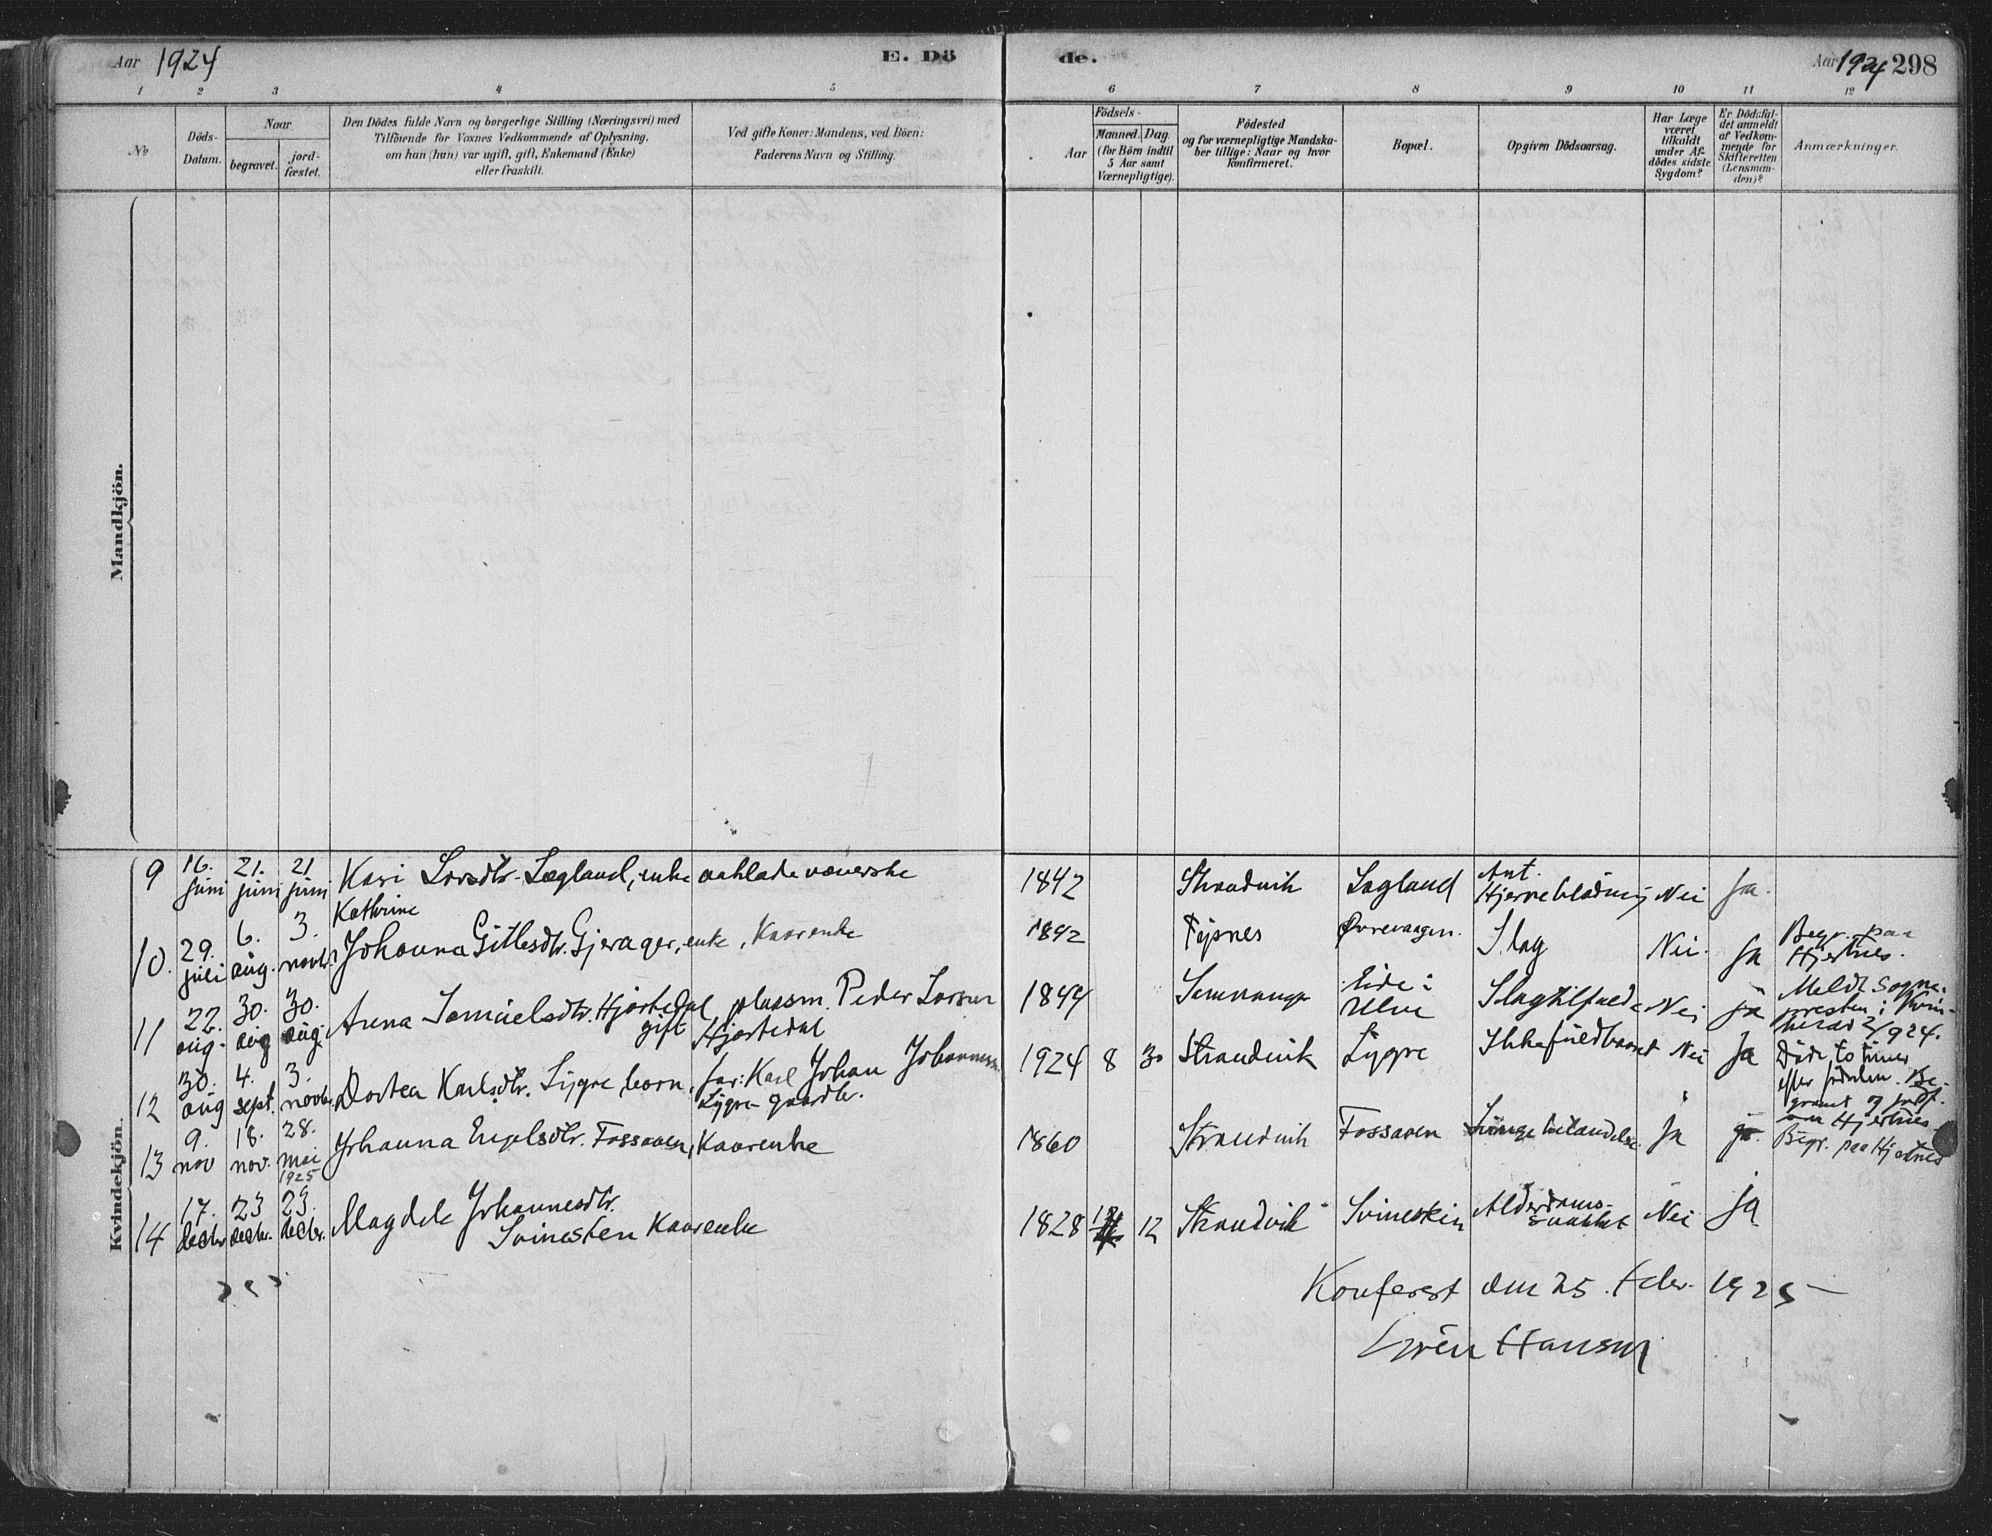 Aar 1924
E. Dö
de.
Aar 1924 298
1 2 3 4 5 6 7 8 9 10 11 12
No
Döds-Datum.
Naar
begravet.
jord-fæstet.
Den Dödes fulde Navn og borgerlige Stilling (Næringsvei) med
Tilföiende for Voxnes Vedkommende af Oplysning,
om han (hun) var ugift, gift, Enkemand (Enke)
eller fraskilt.
Ved gifte Koner: Mandens, ved Börn:
Faderens Navn og Stilling.
Födsels-
Aar
Maaned. Dag.
(for Börn indtil
5 Aar samt
Værnepligtige).
Födested
og for værnepligtige Mandska-
ber tillige: Naar og hvor
konfirmeret.
Bopæl.
Opgiven Dödsaarsag.
Har Læge
været
tilkaldt
under Af-
dödes sidste
Sygdom?
Er Dödsfal-
det anmeldt
af Vedkom-
mende for
Skifteretten
(Lensman-
den)?
Anmærkninger.
Mandkjön.
Kvindekjön.
9 16. juni 21. juni 21 juni Kari Larsdtr. Lægland, enke 1842 Strandvik Hjerneblødning Nei Ja.
10. 29. juli 6. aug. 3. novbr. Johanna Kathrine Gitlesdtr. Gjerager, enke, Kaarenke 1842 Øvrevaagen. Slag Nei. Ja Begr. paa Hjertnes.
11 22. aug. 30. aug 30. aug. Anna Samuelsdtr. Hjortedal gift plassm. Peder Larsen Hjortedal 1844 Eide i Ulve Slagtilfælde Nei ja Meldt Sogne-
presten i Kvin-
herad 2/9 24.
12 30. aug 4. sept. 3. novbr. Dortea Karlsdtr. Lygre, barn. far: Karl Johan Johannesen Lygre gaardbr. 1924 8 30 Strandvik Lygre Ikke fuldbaaret Nei Ja Døde to timer
efter fødselen. Be-
gravet og jordf.
som Hjertnes.
13 9. nov 18. nov. 28. mai 1925 Johanna Engelsdtr. Fossaaen, Kaarenke 1860 Strandvik Fossaaen Lungebetændelse. Ja ja. Begr. paa Hjertnes
14 17. decbr 23 decbr. 23. decbr. Magdele Johannesdtr.
Svinesten Kaarenke 1828 12 Strandvik Alderdoms-
svakhet Nei ja
Konferert den 25. febr. 1925
Hansen